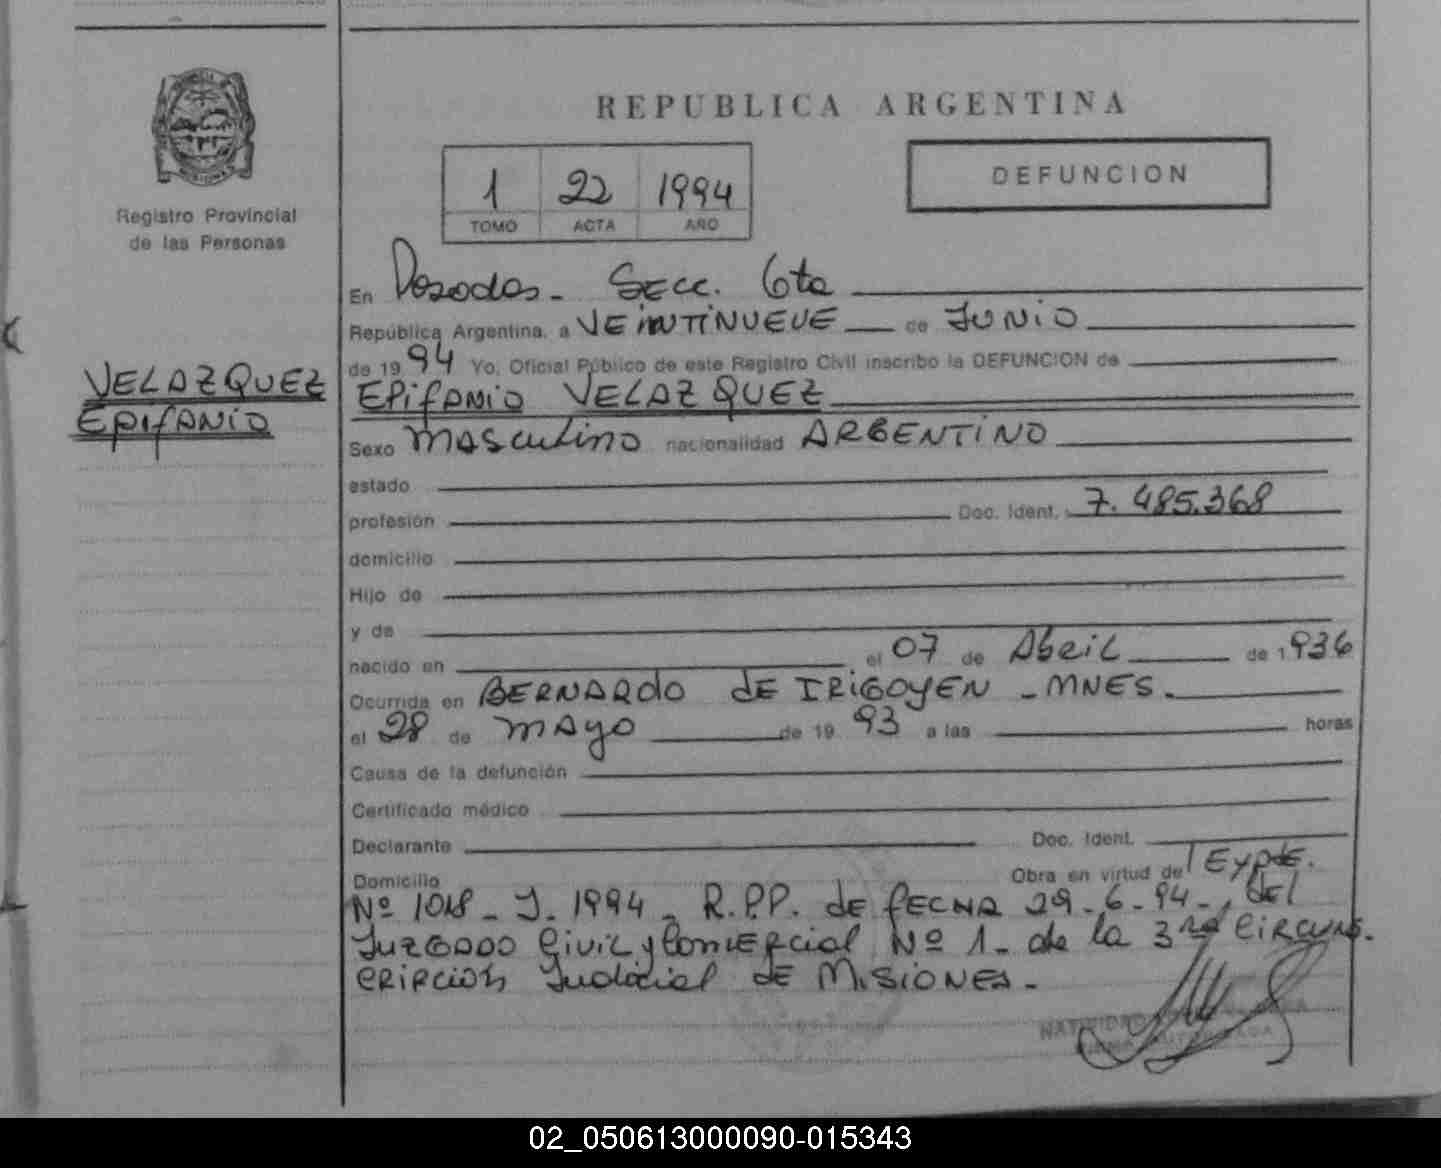 REPUBLICA ARGENTINA
1 22 1994
TOMO ACTA AÑO
DEFUNCION
Registro Provincial
de las Personas
VELAZQUEZ
EpifANiO
En Posadas - SEcc. 6ta
República Argentina, a VEiNTiNUEVE de JUNiO
de 1994 Yo, Oficial Público de este Registro Civil inscribo la DEFUNCION de
EpifANiO VELAZQUEZ
Sexo MAsculino nacionalidad ARGENTiNO
estado
profesión Doc. Ident. 7.485.368
domicilio
Hijo de
y de
nacido en el 07 de AbRiL de 1936
Ocurrida en BERNARDO dE IRiGOYEN - MNES.
el 28 de mAyo de 1993 a las horas
Causa de la defunción
Certificado médico
Declarante Doc. Ident.
Domicilio Obra en virtud de Expte.
Nº 1018 - J - 1994 - R.P.P. dE fECHA 29-6-94 -, dEl
JuzGADO CiviL y ComERcial Nº 1 - de la 3ra CiRcuns-
cRipción Judicial dE MiSiONEs -
02_050613000090-015343